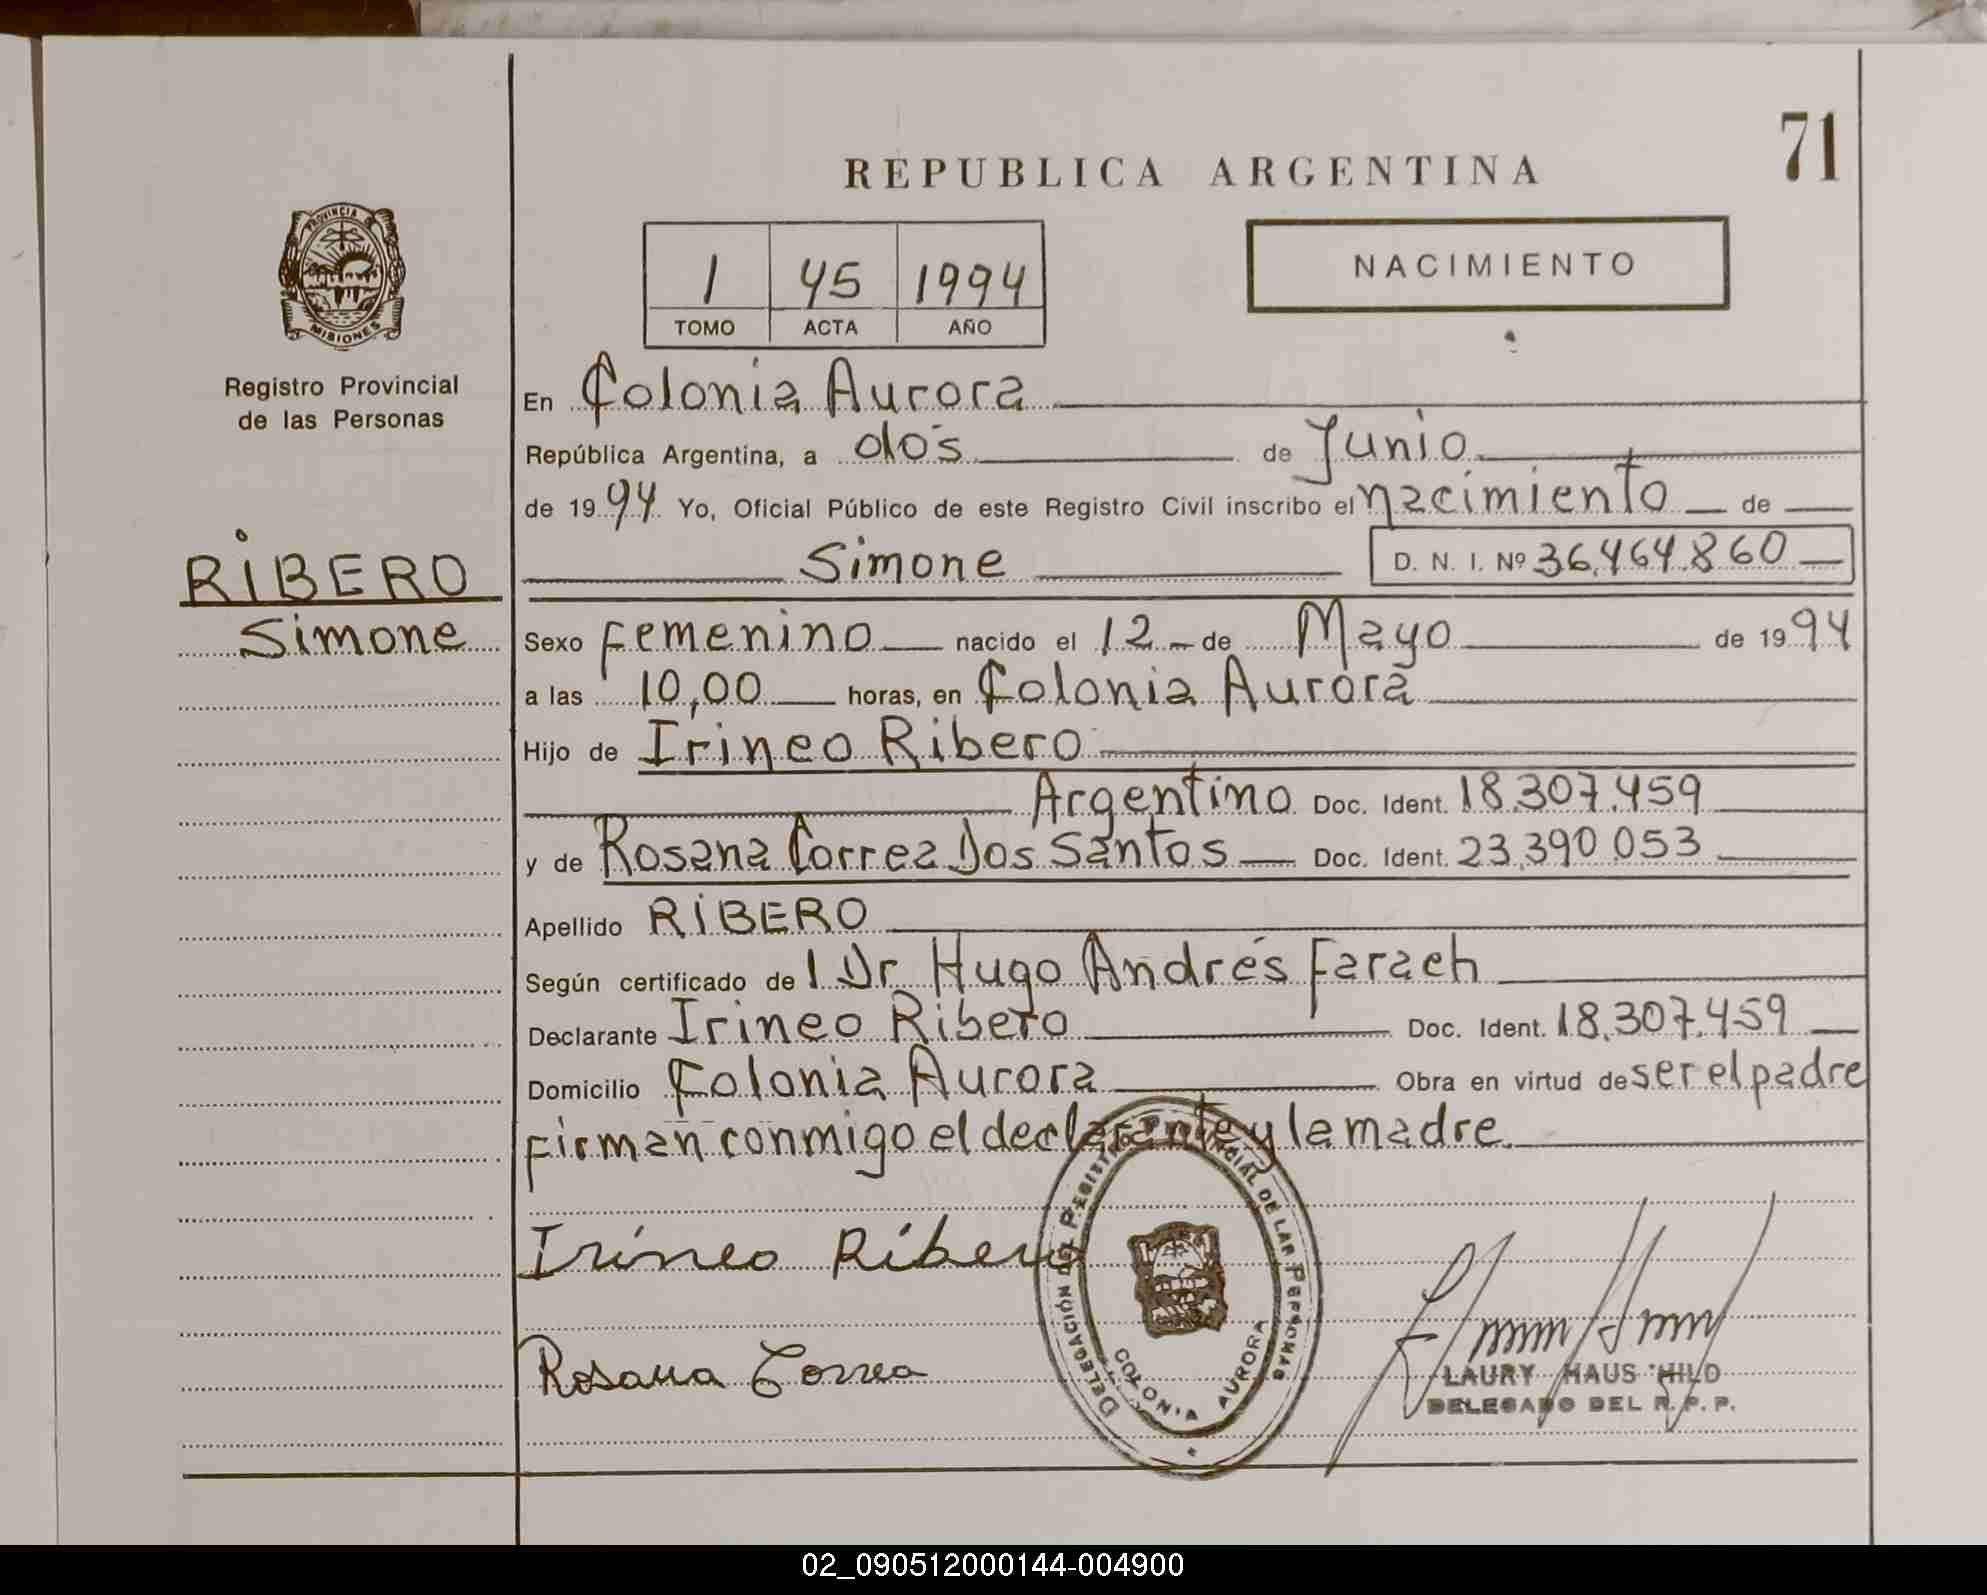 71
REPUBLICA ARGENTINA
PROVINCIA DE
MISIONES
Registro Provincial
de las Personas
1 45 1994
TOMO ACTA AÑO
NACIMIENTO
En Colonia Aurora
República Argentina, a dos de Junio
de 1994 Yo, Oficial Público de este Registro Civil inscribo el nacimiento de
Simone D. N. I. Nº 36.464.860
RIBERO
Simone
Sexo Femenino nacido el 12 de Mayo de 1994
a las 10,00 horas, en Colonia Aurora
Hijo de Irineo Ribero
Argentino Doc. Ident. 18.307.459
y de Rosana Correa Dos Santos Doc. Ident. 23.390.053
Apellido RIBERO
Según certificado del Dr Hugo Andrés Farach
Declarante Irineo Ribero Doc. Ident. 18.307.459
Domicilio Colonia Aurora Obra en virtud de ser el padre
Firman conmigo el declarante y la madre.
Irineo Ribero
Rosana Correa
DELEGACIÓN DEL REGISTRO PROVINCIAL DE LAS PERSONAS
COLONIA AURORA
LAURY HAUS HILD
DELEGADO DEL R. P. P.
02_090512000144-004900